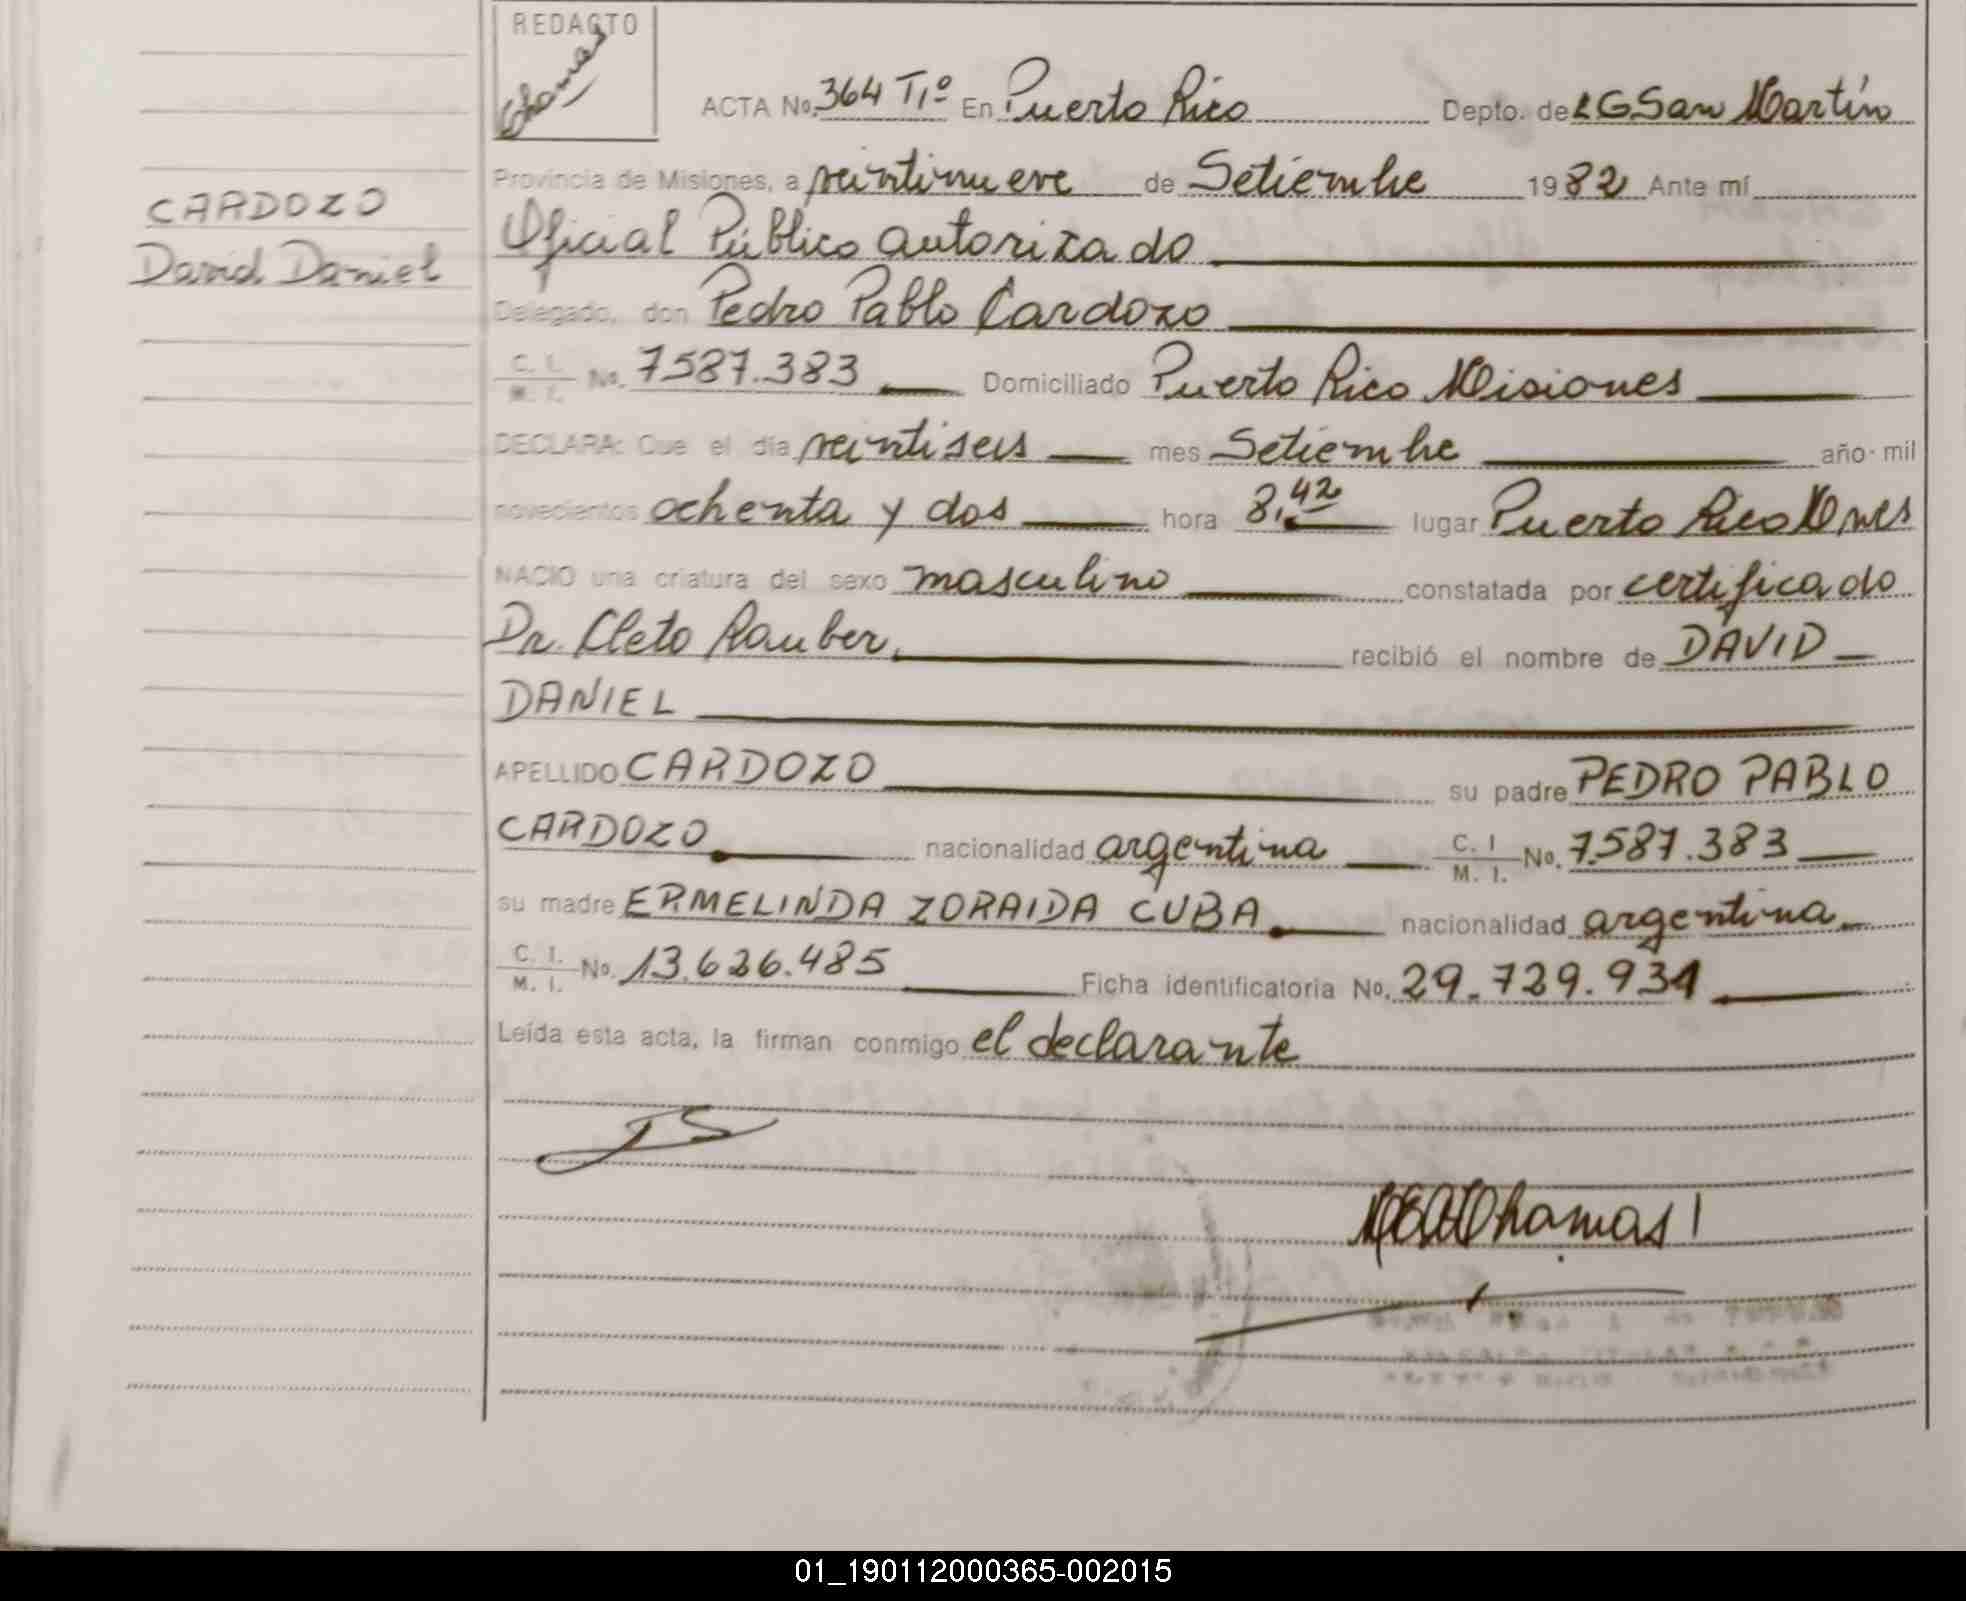 REDACTO
Chamas
ACTA No. 364 T1º En Puerto Rico Depto. de LG San Martín
Provincia de Misiones, a veintinueve de Setiembre 1982 Ante mí
CARDOZO
Oficial Público autorizado
David Daniel
Delegado, don Pedro Pablo Cardozo
C. I. M. I. No. 7587.383 Domiciliado Puerto Rico Misiones
DECLARA: Que el día veintiseis mes Setiembre año mil
novecientos ochenta y dos hora 8,42 lugar Puerto Rico Mnes
NACIO una criatura del sexo masculino constatada por certificado
Dr. Cleto Rauber, recibió el nombre de DAVID
DANIEL
APELLIDO CARDOZO su padre PEDRO PABLO
CARDOZO nacionalidad argentina C. I M. I. No. 7.587.383
su madre ERMELINDA ZORAIDA CUBA nacionalidad argentina
C. I. M. I. No. 13.626.485 Ficha identificatoria No. 29.729.931
Leída esta acta, la firman conmigo el declarante
01_190112000365-002015